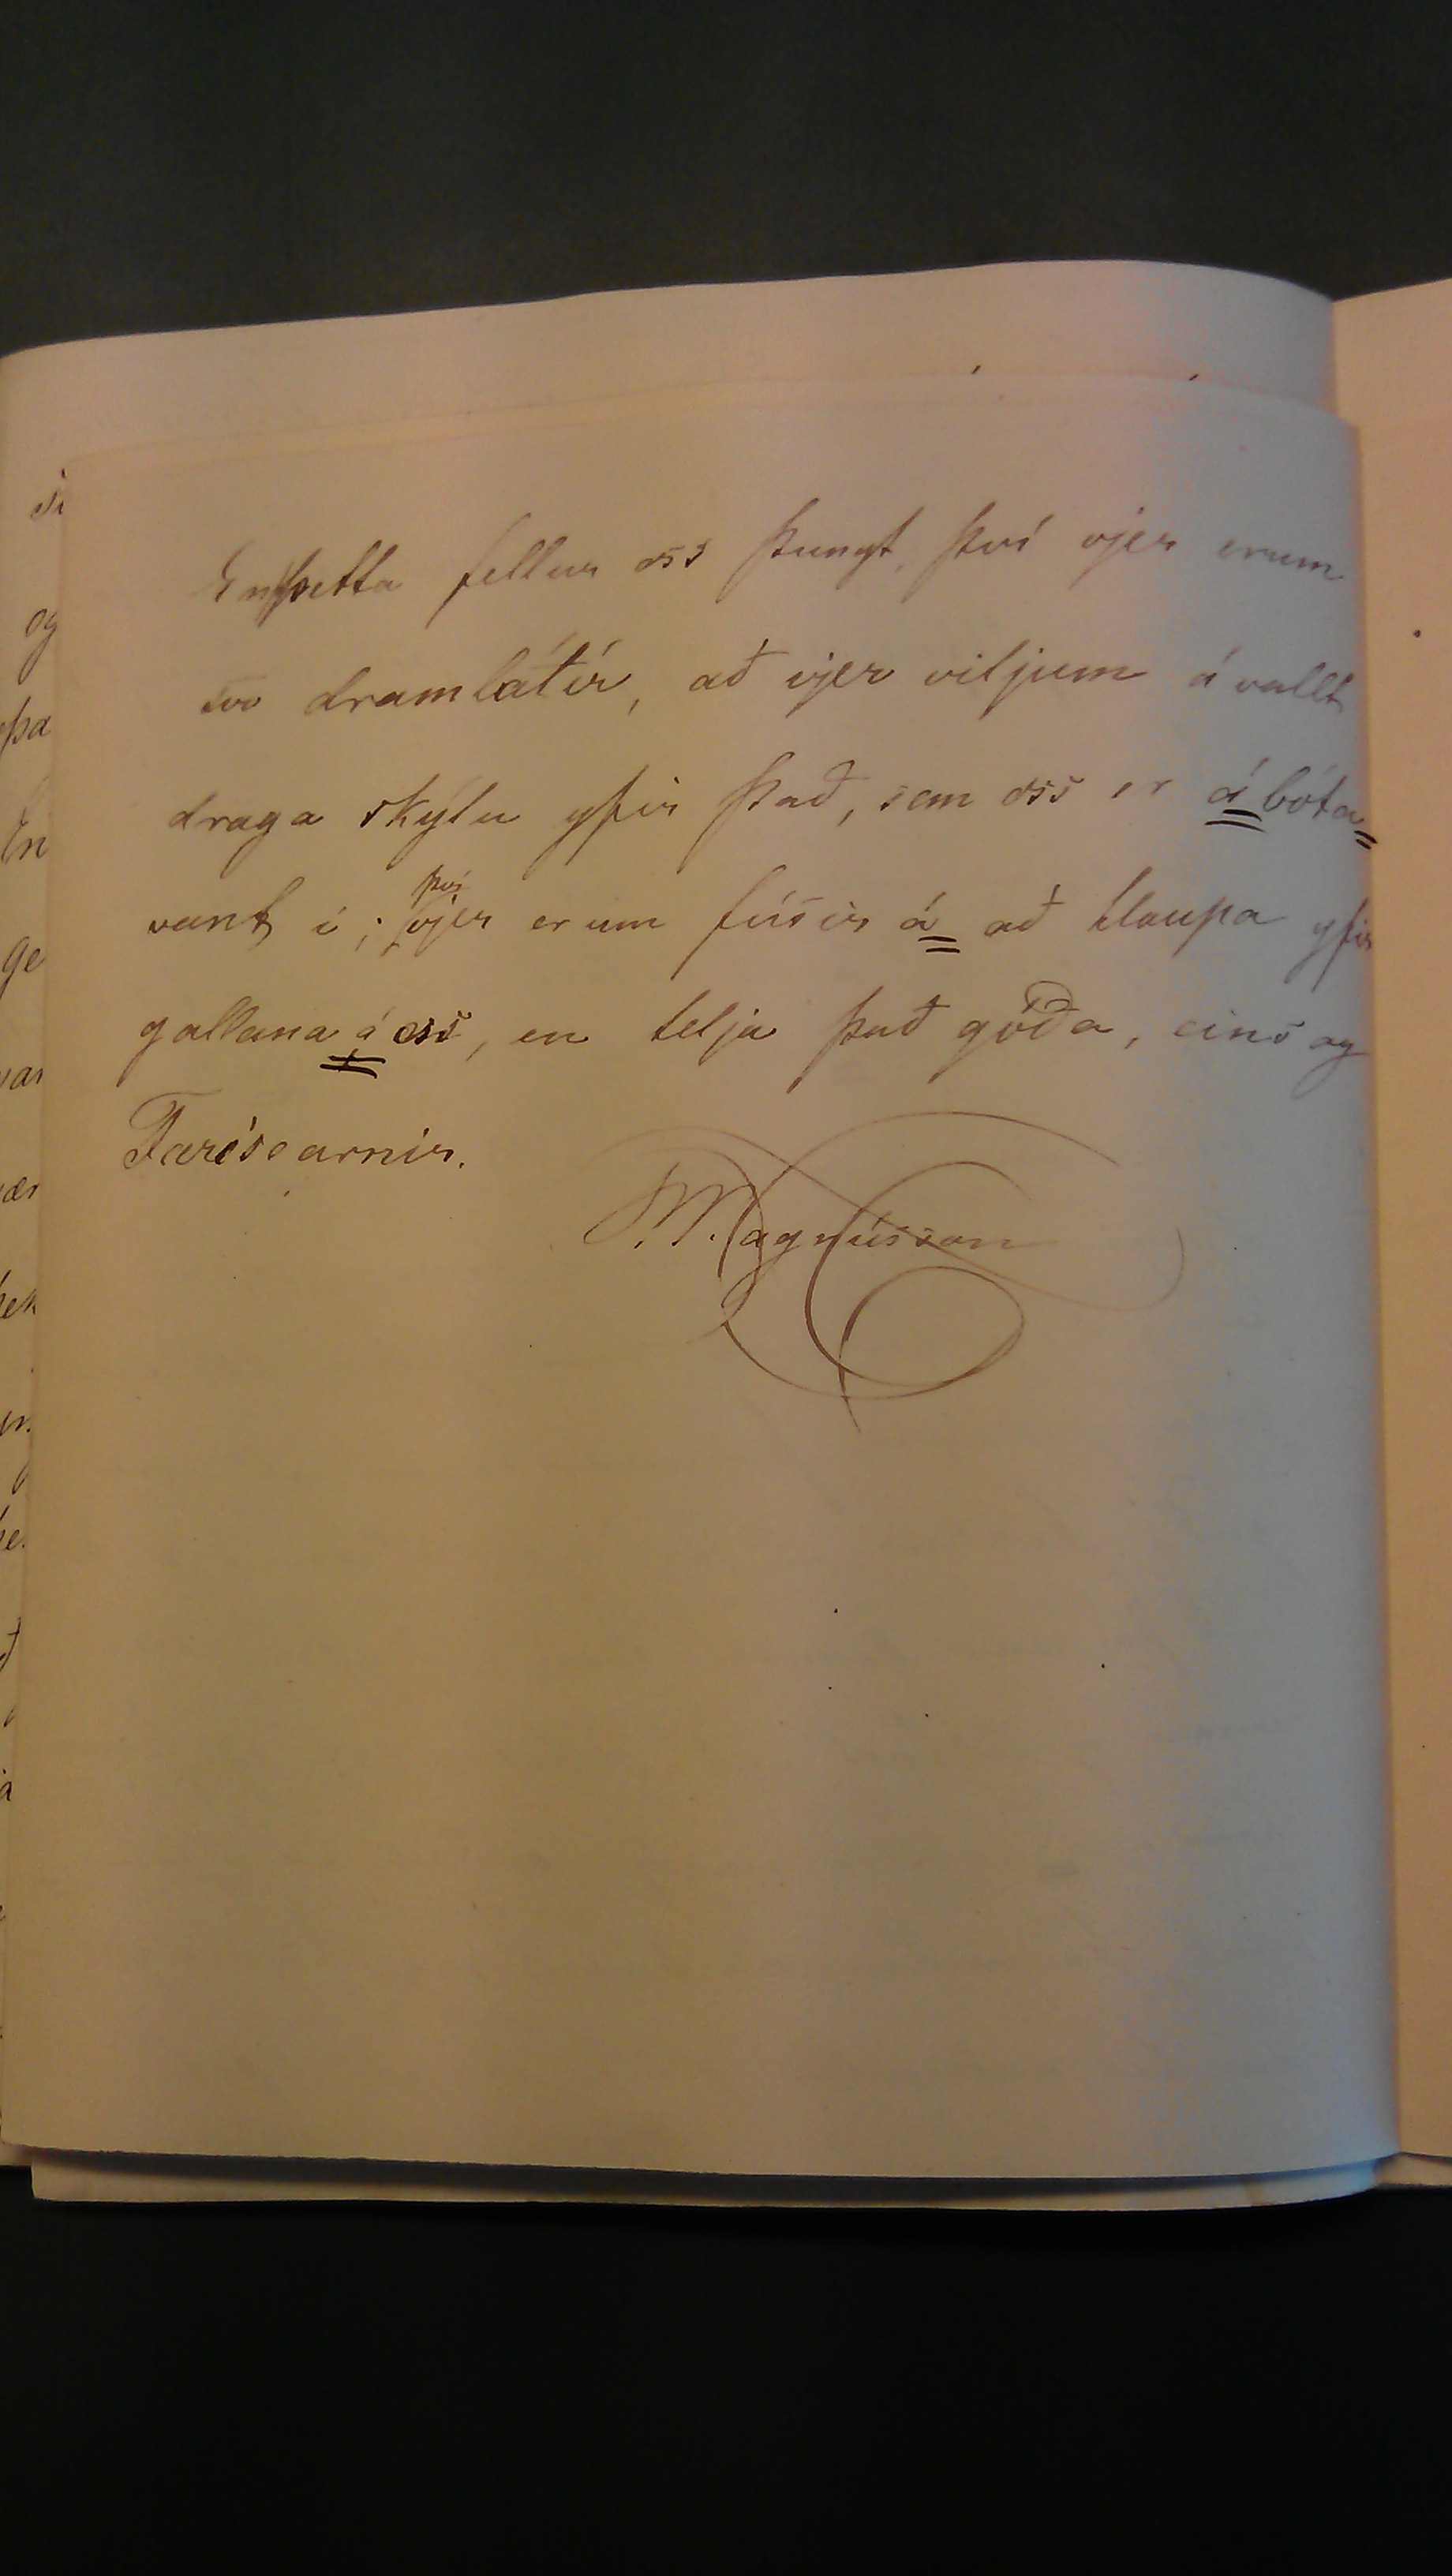 En þetta fellur oss þungt, því vjer erum
svo dramlátir, að vjer viljum ávallt
draga skýlu yfir það, sem oss er ábóta-
vant í; því vjer erum fúsir á að hlaupa yfir
gallana á oss, en telja það góða, eins og
Farísearnir.
M. Magnússon